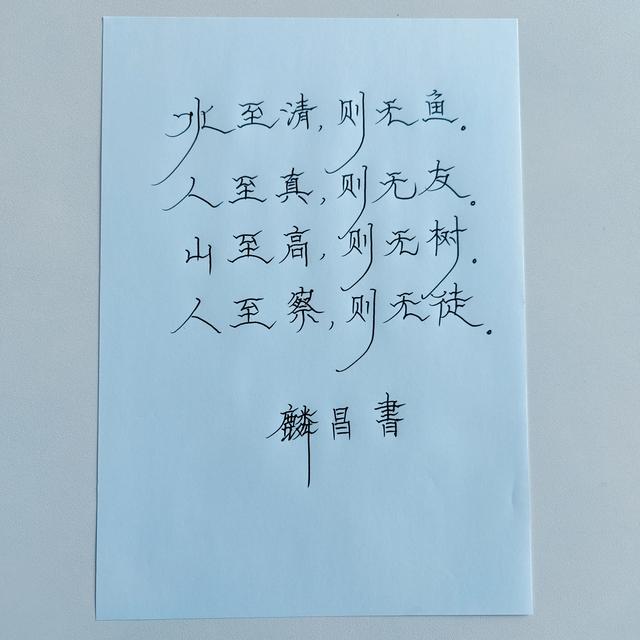 水至清,则无鱼。
人至真,则无友。
山至高,则无树。
人至察,则无徒。
麟昌書